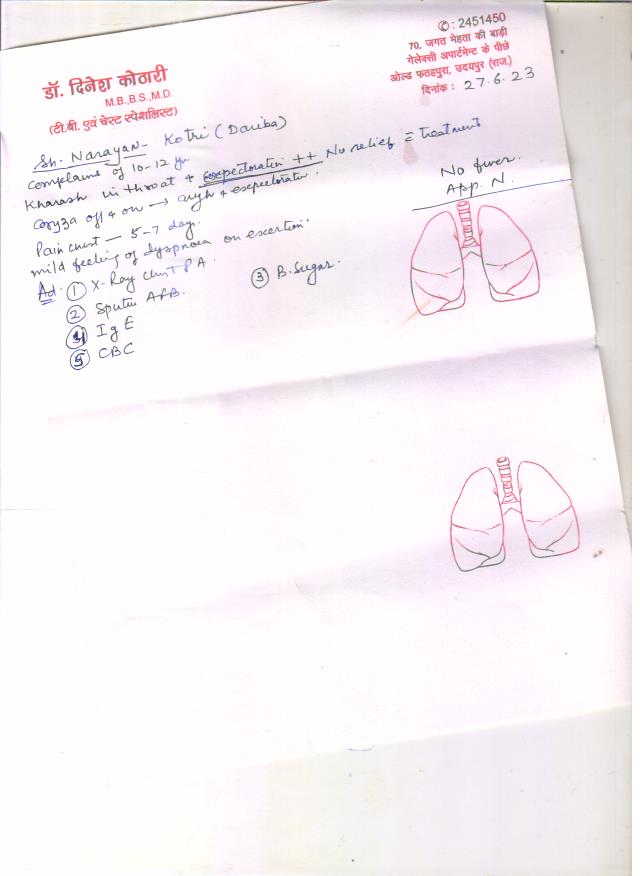 ✆: 2451450
70, जगत मेहता की बाड़ी
गेलेक्सी अपार्टमेन्ट के पीछे
ओल्ड फतहपुरा, उदयपुर (राज.)
दिनांक: 27.6.23
डॉ. दिनेश कोठारी
M.B.,B.S.,M.D.
(टी.बी. एवं चेस्ट स्पेशलिस्ट)
Sh. Narayan- Kotri (Dariba)
Complains of 10-12 yr
Kharash in throat + expectoration ++ No relief c treatment
Coryza off & on → cough + expectoration.
Pain chest — 5-7 day.
mild feeling of dyspnoea on exertion.
No fever.
App. N.
Ad. ① X-Ray chest P A.
② Sputum AFB.
③ B. Sugar.
④ IgE
⑤ CBC